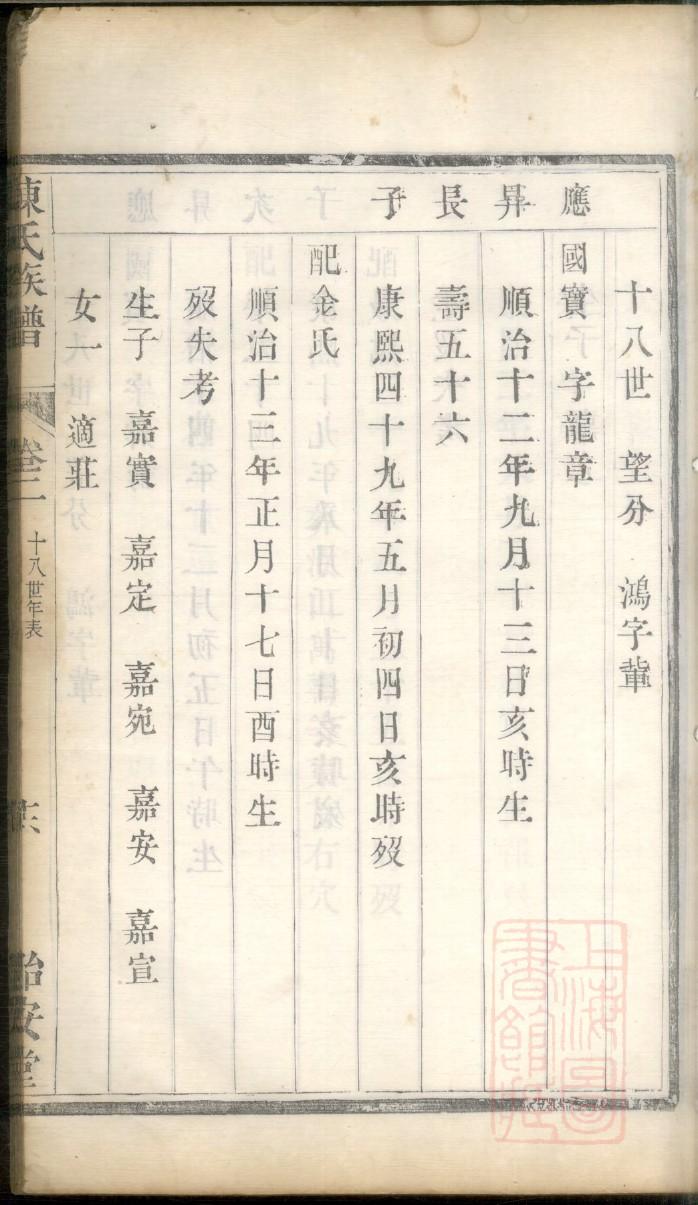 十八世 望分 鴻字輩
應昇長子
國寳 字龍章
順治十二年九月十三日亥時生
壽五十六
康熙四十九年五月初四日亥時歿
配金氏
順治十三年正月十七日酉時生
歿失考
生子 嘉實 嘉定 嘉宛 嘉安 嘉宣
女一 適莊
陳氏族譜 卷二 十八世年表 怡安堂
上海圖書館藏